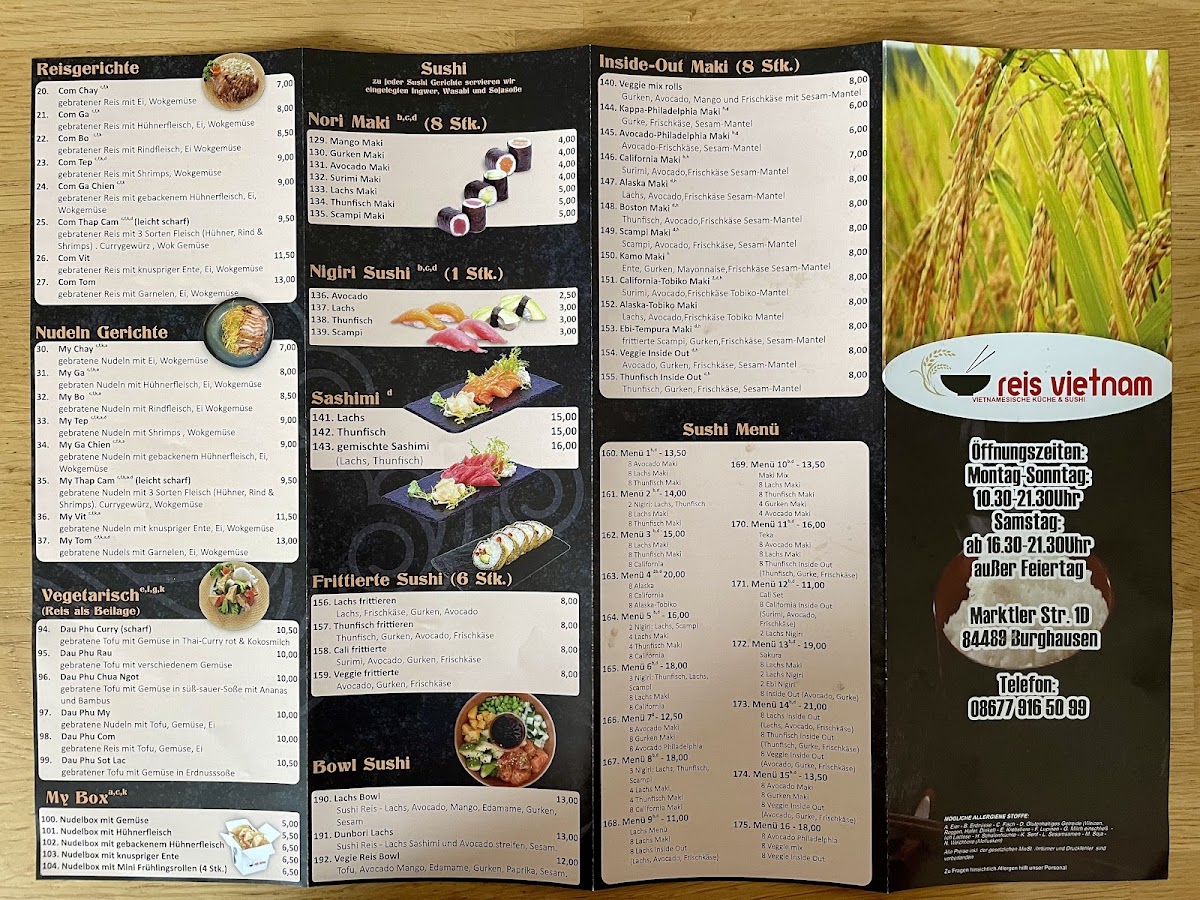 Reisgerichte
20. Com Chay c,f,k 7,00
gebratener Reis mit Ei, Wokgemüse
21. Com Ga 8,00
gebratener Reis mit Hühnerfleisch, Ei, Wokgemüse
22. Com Bo 8,50
gebratener Reis mit Rindfleisch, Ei Wokgemüse
23. Com Tep 9,00
gebratener Reis mit Shrimps, Wokgemüse
24. Com Ga Chien 9,00
gebratener Reis mit gebackenem Hühnerfleisch, Ei,
Wokgemüse
25. Com Thap Cam (leicht scharf) 9,50
gebratener Reis mit 3 Sorten Fleisch (Hühner, Rind &
Shrimps) . Currygewürz , Wok Gemüse
26. Com Vit 11,50
gebratener Reis mit knuspriger Ente, Ei, Wokgemüse
27. Com Tom 13,00
gebratener Reis mit Garnelen, Ei, Wokgemüse
Nudeln Gerichte
30. My Chay 7,00
gebratene Nudeln mit Ei, Wokgemüse
31. My Ga 8,00
gebraten Nudeln mit Hühnerfleisch, Ei, Wokgemüse
32. My Bo 8,50
gebratene Nudeln mit Rindfleisch, Ei, Wokgemüse
33. My Tep 9,00
gebratene Nudeln mit Shrimps , Wokgemüse
34. My Ga Chien 9,00
gebratene Nudeln mit gebackenem Hühnerfleisch, Ei,
Wokgemüse
35. My Thap Cam (leicht scharf) 9,50
gebratene Nudeln mit 3 Sorten Fleisch (Hühner, Rind &
Shrimps). Currygewürz, Wokgemüse
36. My Vit 11,50
gebratene Nudeln mit knuspriger Ente, Ei, Wokgemüse
37. My Tom 13,00
gebratene Nudels mit Garnelen, Ei, Wokgemüse
Vegetarisch e,f,g,k
(Reis als Beilage)
94. Dau Phu Curry (scharf) 10,50
gebratene Tofu mit Gemüse in Thai-Curry rot & Kokosmilch
95. Dau Phu Rau 10,00
gebratene Tofu mit verschiedenem Gemüse
96. Dau Phu Chua Ngot 10,00
gebratene Tofu mit Gemüse in süß-sauer-Soße mit Ananas
und Bambus
97. Dau Phu My 10,00
gebratene Nudeln mit Tofu, Gemüse, Ei
98. Dau Phu Com 10,00
gebratene Reis mit Tofu, Gemüse, Ei
99. Dau Phu Sot Lac 10,50
gebratener Tofu mit Gemüse in Erdnusssoße
My Box a,c,k
100. Nudelbox mit Gemüse 5,00
101. Nudelbox mit Hühnerfleisch 5,50
102. Nudelbox mit gebackenem Hühnerfleisch 6,50
103. Nudelbox mit knuspriger Ente 6,50
104. Nudelbox mit Mini Frühlingsrollen (4 Stk.) 6,50
Sushi
zu jeder Sushi Gerichte servieren wir
eingelegten Ingwer, Wasabi und Sojasoße
Nori Maki b,c,d (8 Stk.)
129. Mango Maki 4,00
130. Gurken Maki 4,00
131. Avocado Maki 4,00
132. Surimi Maki 4,00
133. Lachs Maki 5,00
134. Thunfisch Maki 5,00
135. Scampi Maki 5,00
Nigiri Sushi b,c,d (1 Stk.)
136. Avocado 2,50
137. Lachs 3,00
138. Thunfisch 3,00
139. Scampi 3,00
Sashimi d
141. Lachs 15,00
142. Thunfisch 15,00
143. gemischte Sashimi 16,00
(Lachs, Thunfisch)
Frittierte Sushi (6 Stk.)
156. Lachs frittieren 8,00
Lachs, Frischkäse, Gurken, Avocado
157. Thunfisch frittieren 8,00
Thunfisch, Gurken, Avocado, Frischkäse
158. Cali frittierte 8,00
Surimi, Avocado, Gurken, Frischkäse
159. Veggie frittierte 8,00
Avocado, Gurken, Frischkäse
Bowl Sushi
190. Lachs Bowl 13,00
Sushi Reis - Lachs, Avocado, Mango, Edamame, Gurken,
Sesam
191. Dunbori Lachs 13,00
Sushi Reis - Lachs Sashimi und Avocado streifen, Sesam.
192. Vegie Reis Bowl 12,00
Tofu, Avocado Mango, Edamame, Gurken, Paprika, Sesam,
Inside-Out Maki (8 Stk.)
140. Veggie mix rolls 8,00
Gurken, Avocado, Mango und Frischkäse mit Sesam-Mantel
144. Kappa-Philadelphia Maki 6,00
Gurke, Frischkäse, Sesam-Mantel
145. Avocado-Philadelphia Maki 6,00
Avocado-Frischkäse, Sesam-Mantel
146. California Maki 7,00
Surimi, Avocado,Frischkäse Sesam-Mantel
147. Alaska Maki 8,00
Lachs, Avocado,Frischkäse Sesam-Mantel
148. Boston Maki 8,00
Thunfisch, Avocado,Frischkäse Sesam-Mantel
149. Scampi Maki 8,00
Scampi, Avocado,Frischkäse, Sesam-Mantel
150. Kamo Maki 8,00
Ente, Gurken, Mayonnaise,Frischkäse Sesam-Mantel
151. California-Tobiko Maki 8,00
Surimi, Avocado,Frischkäse Tobiko-Mantel
152. Alaska-Tobiko Maki 8,00
Lachs, Avocado,Frischkäse Tobiko Mantel
153. Ebi-Tempura Maki 8,00
frittierte Scampi, Gurken,Frischkäse, Sesam-Mantel
154. Veggie Inside Out 8,00
Avocado, Gurken, Frischkäse, Sesam-Mantel
155. Thunfisch Inside Out 8,00
Thunfisch, Gurken, Frischkäse, Sesam-Mantel
Sushi Menü
160. Menü 1 b,d - 13,50
8 Avocado Maki
8 Lachs Maki
8 Thunfisch Maki
161. Menü 2 b,d - 14,00
2 Nigiri: Lachs, Thunfisch
8 Lachs Maki
8 Thunfisch Maki
162. Menü 3 b,d 15,00
8 Lachs Maki
8 Thunfisch Maki
8 California
163. Menü 4 20,00
8 Alaska
8 California
8 Alaska-Tobiko
164. Menü 5 b,d - 16,00
2 Nigiri: Lachs, Scampi
4 Lachs Maki
4 Thunfisch Maki
8 California
165. Menü 6 b,d - 18,00
3 Nigiri: Thunfisch, Lachs,
Scampi
8 Lachs Maki
8 California
166. Menü 7 - 12,50
8 Avocado Maki
8 Gurken Maki
8 Avocado Philadelphia
167. Menü 8 b,d - 18,00
3 Nigiri: Lachs, Thunfisch,
Scampi
4 Lachs Maki,
4 Thunfisch Maki
8 California Maki
168. Menü 9 b,d - 11,00
Lachs Menü
8 Lachs Maki
8 Lachs Inside Out
(Lachs, Avocado, Frischkäse)
169. Menü 10 b,d - 13,50
Maki Mix
8 Lachs Maki
8 Thunfisch Maki
4 Gurken Maki
4 Avocado Maki
170. Menü 11 b,d - 16,00
Teka
8 Avocado Maki
8 Lachs Maki
8 Thunfisch Inside Out
(Thunfisch, Gurke, Frischkäse)
171. Menü 12 b,d - 11,00
Cali Set
8 California Inside Out
(Surimi, Avocado,
Frischkäse)
2 Lachs Nigiri
172. Menü 13 b,d - 19,00
Sakura
8 Lachs Maki
2 Lachs Nigiri
2 Ebi Nigiri
8 Inside Out (Avocado, Gurke)
173. Menü 14 b,d - 21,00
8 Lachs Inside Out
(Lachs, Avocado, Frischkäse)
8 Thunfisch Inside Out
(Thunfisch, Gurke, Frischkäse)
8 Veggie Inside Out
(Avocado, Gurke, Frischkäse)
174. Menü 15 b,d - 13,50
8 Avocado Maki
8 Gurken Maki
8 Veggie Inside Out
(Avocado, Gurke, Frischkäse)
175. Menü 16 - 18,00
8 Avocado Philadelphia
8 Veggie mix
8 Veggie Inside Out
reis vietnam
VIETNAMESISCHE KÜCHE & SUSHI
Öffnungszeiten:
Montag-Sonntag:
10.30-21.30Uhr
Samstag:
ab 16.30-21.30Uhr
außer Feiertag
Marktler Str. 10
84489 Burghausen
Telefon:
08677 916 50 99
MÖGLICHE ALLERGIENE STOFFE:
A. Eier - B. Erdnüsse - C. Fisch - D. Glutenhaltiges Getreide (Weizen,
Roggen, Hafer, Dinkel) - E. Krebstiere - F. Lupinen - G. Milch einschließ -
lich Laktose - H. Schalenfrüchte - K. Senf - L. Sesamsamen - M. Soja -
N. Weichtiere (Mollusken)
Alle Preise inkl. der gesetzlichen MwSt. Irrtümer und Druckfehler sind
vorbehalten
Zu Fragen hinsichtlich Allergen hilft unser Personal